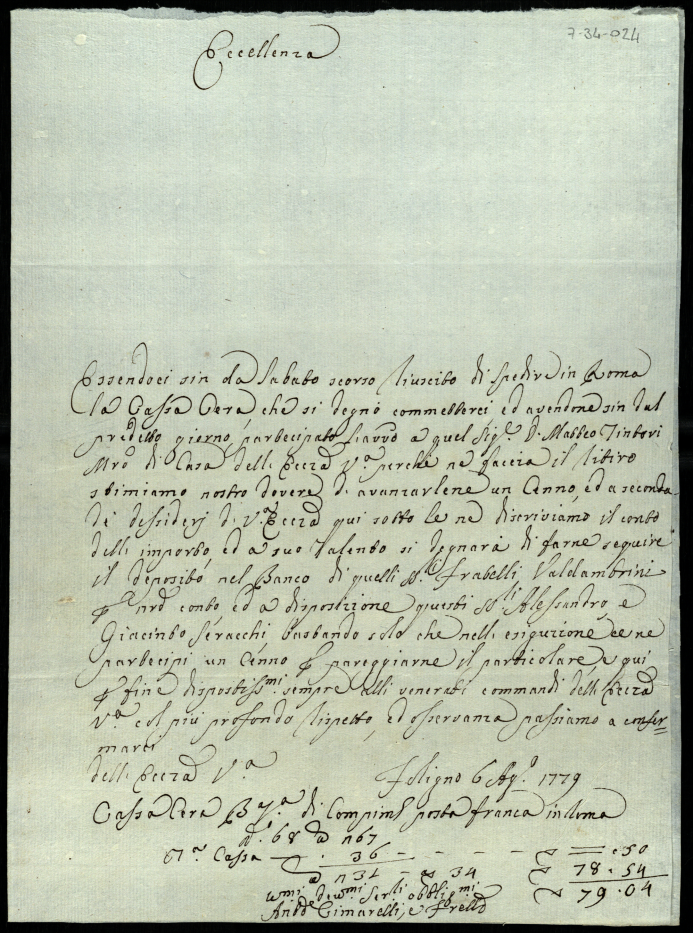 7-34-024
Eccellenza
Essendoci sin da Sabato scorso riuscito di spedire in Roma
la Cassa Cera, che si degnò commetterci ed avendone sin dal
predetto giorno, partecipato l'avvo a quel Sigr. D. Matteo Tintori
Mro di Casa dell' Eccza Va. perchè ne faccia il ritiro
stimiamo nostro dovere di avanzarlene un Cenno, ed a seconda
de' dessiderj di Va. Eccza qui sotto le ne discriviamo il conto
dell' importo, ed a suo talento si degnarà di farne seguire
il deposito, nel Banco di quelli SSri Fratelli Valdambrini
p nro conto ed a disposizione questi SSri Alessandro, e
Giacinto Seracchi bastando solo che nell' esiguzione ce ne
partecipi un Cenno p pareggiarne il particolare, e qui
p fine dispostissmi sempre alli venerati commandi dell' Eccza
Va. col più profondo rispetto, ed osservanza passiamo a confer=
marci
dell' Eccza Va.
Foligno 6 Agto 1779
Cassa Cera di posta franca in Roma
68 n 67
Cassa 36 - - - - = : 50
n 34 34 78 . 54
79 . 04
umi devmi serri obbligmi
Antº Cimarelli, e Frello